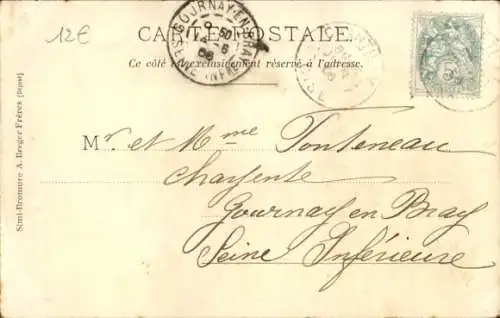 12€
CARTE POSTALE
Ce côté est exclusivement réservé à l'adresse.
GOURNAY-EN-BRAY
SEINE INFRE
Mr. et Mme Fonteneau
Charpente
Gournay en Bray
Seine Inférieure
Simi-Bromure A. Breger Frères